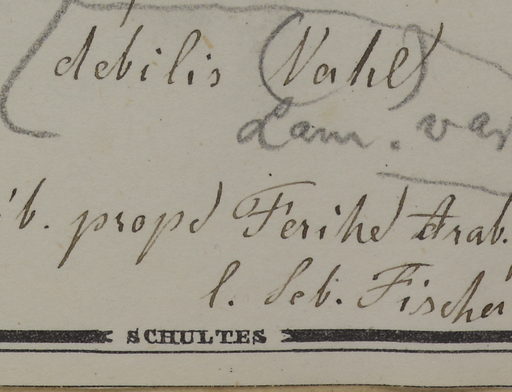 debilis (Vahl)
Lam. var
b. prope Ferihe Arab.
l. Seb. Fischer
SCHULTES